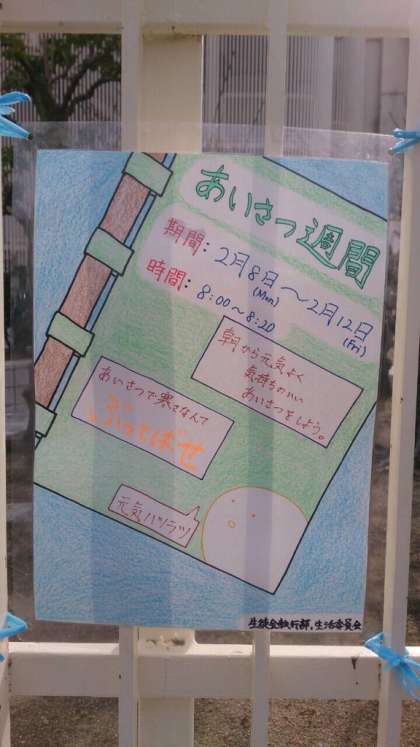 あいさつ週間
期間：2月8日～2月12日
(Mon) (Fri)
時間：8:00～8:20
朝から元気よく
気持ちのいい
あいさつをしよう。
あいさつで寒さなんて
ぶっとばせ
元気ハツラツ
生徒会執行部，生活委員会